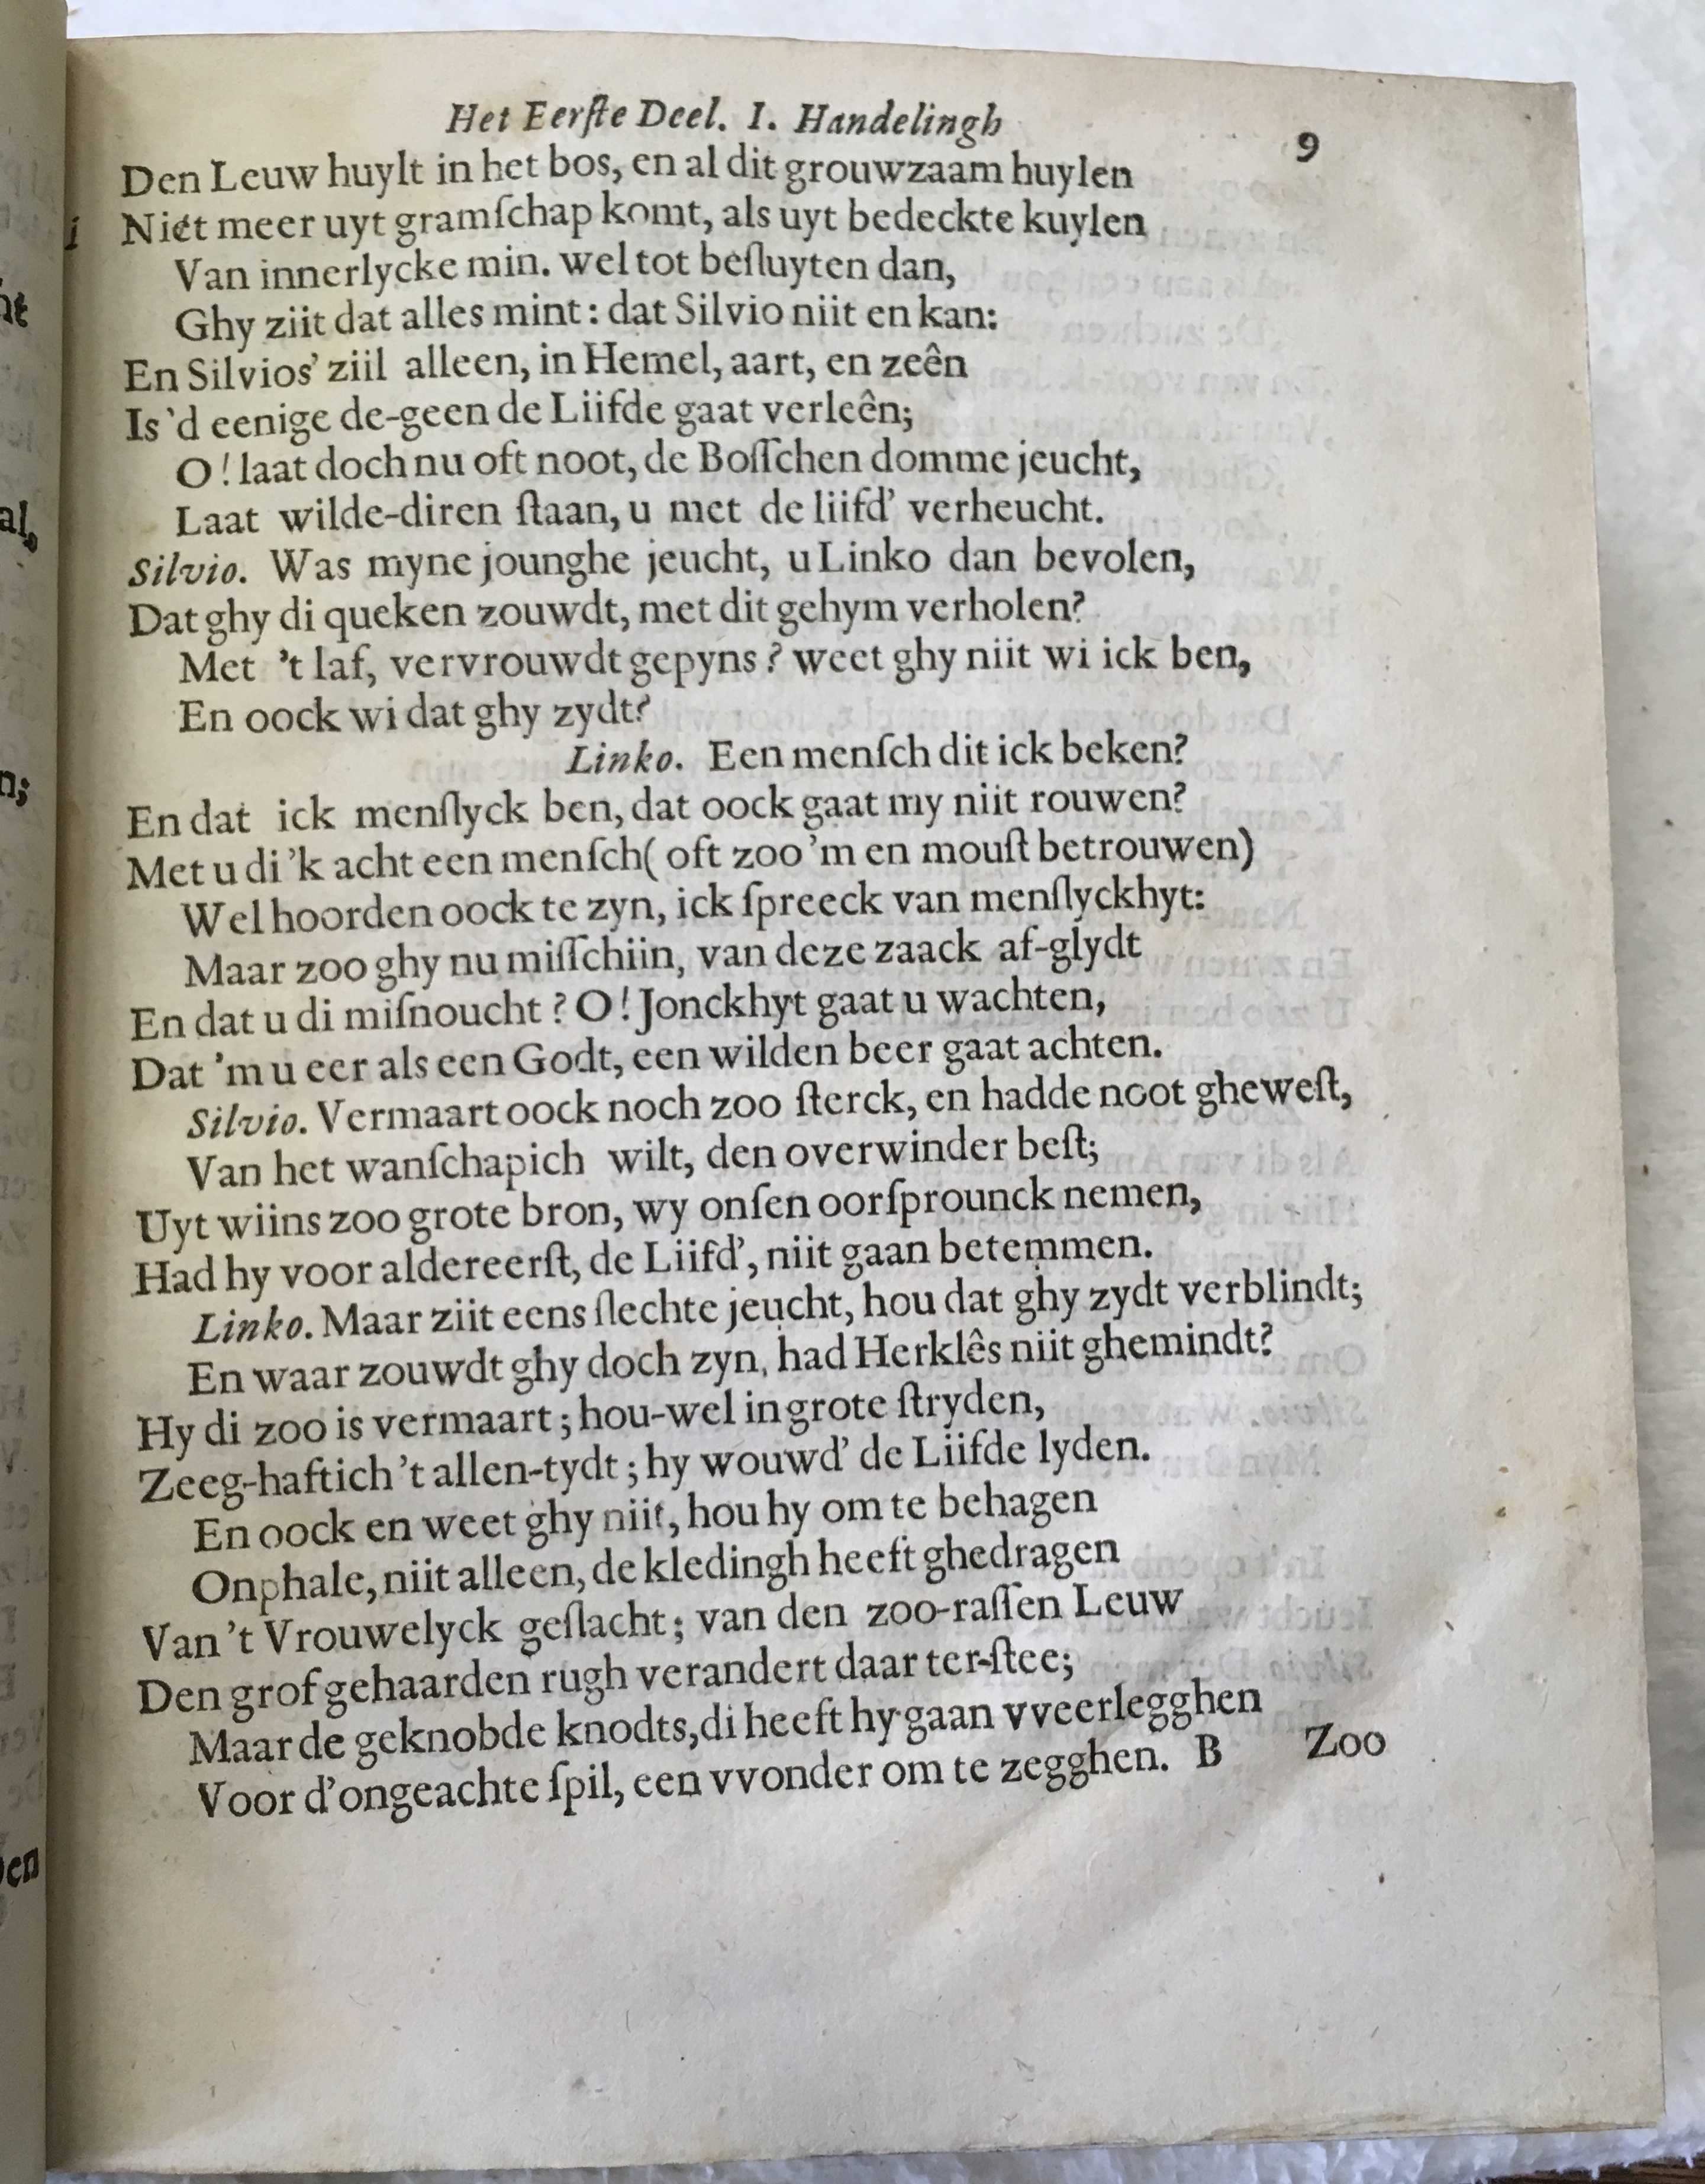 Het Eerſte Deel. I. Handelingh
9
Den Leuw huylt in het bos, en al dit grouwzaam huylen
Niet meer uyt gramſchap komt, als uyt bedeckte kuylen
Van innerlycke min. wel tot beſluyten dan,
Ghy ziit dat alles mint: dat Silvio niit en kan:
En Silvios' ziil alleen, in Hemel, aart, en zeên
Is 'd eenige de-geen de Liifde gaat verleên;
O! laat doch nu oft noot, de Boſſchen domme jeucht,
Laat wilde-diren ſtaan, u met de liifd' verheucht.
Silvio. Was myne jounghe jeucht, u Linko dan bevolen,
Dat ghy di queken zouwdt, met dit gehym verholen?
Met 't laf, vervrouwdt gepyns? weet ghy niit wi ick ben,
En oock wi dat ghy zydt?
Linko. Een menſch dit ick beken?
En dat ick menſlyck ben, dat oock gaat my niit rouwen?
Met u di 'k acht een menſch( oft zoo 'm en mouſt betrouwen)
Wel hoorden oock te zyn, ick ſpreeck van menſlyckhyt:
Maar zoo ghy nu miſſchiin, van deze zaack af-glydt
En dat u di miſnoucht? O! Jonckhyt gaat u wachten,
Dat 'm u eer als een Godt, een wilden beer gaat achten.
Silvio. Vermaart oock noch zoo ſterck, en hadde noot gheweſt,
Van het wanſchapich wilt, den overwinder beſt;
Uyt wiins zoo grote bron, wy onſen oorſprounck nemen,
Had hy voor aldereerſt, de Liifd', niit gaan betemmen.
Linko. Maar ziit eens ſlechte jeucht, hou dat ghy zydt verblindt;
En waar zouwdt ghy doch zyn, had Herklês niit ghemindt?
Hy di zoo is vermaart; hou-wel in grote ſtryden,
Zeeg-haftich 't allen-tydt; hy wouwd' de Liifde lyden.
En oock en weet ghy niit, hou hy om te behagen
Onphale, niit alleen, de kledingh heeft ghedragen
Van 't Vrouwelyck geſlacht; van den zoo-raſſen Leuw
Den grof gehaarden rugh verandert daar ter-ſtee;
Maar de geknobde knodts, di heeft hy gaan vveerlegghen
Voor d'ongeachte ſpil, een vvonder om te zegghen. B Zoo